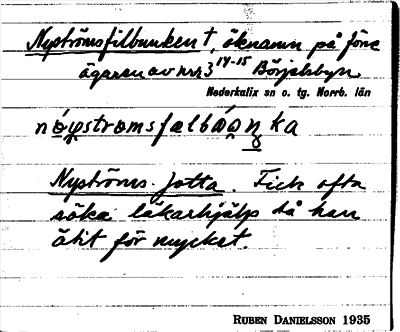 Nyströmsfilbunken †, öknamn på före
ägaren av nr 3 14-15 Börjelsbyn.
Nederkalix sn o. tg. Norrb. län
Nyströms-Jotta. Fick ofta
söka läkarhjälp då han
ätit för mycket.
RUBEN DANIELSSON 1935